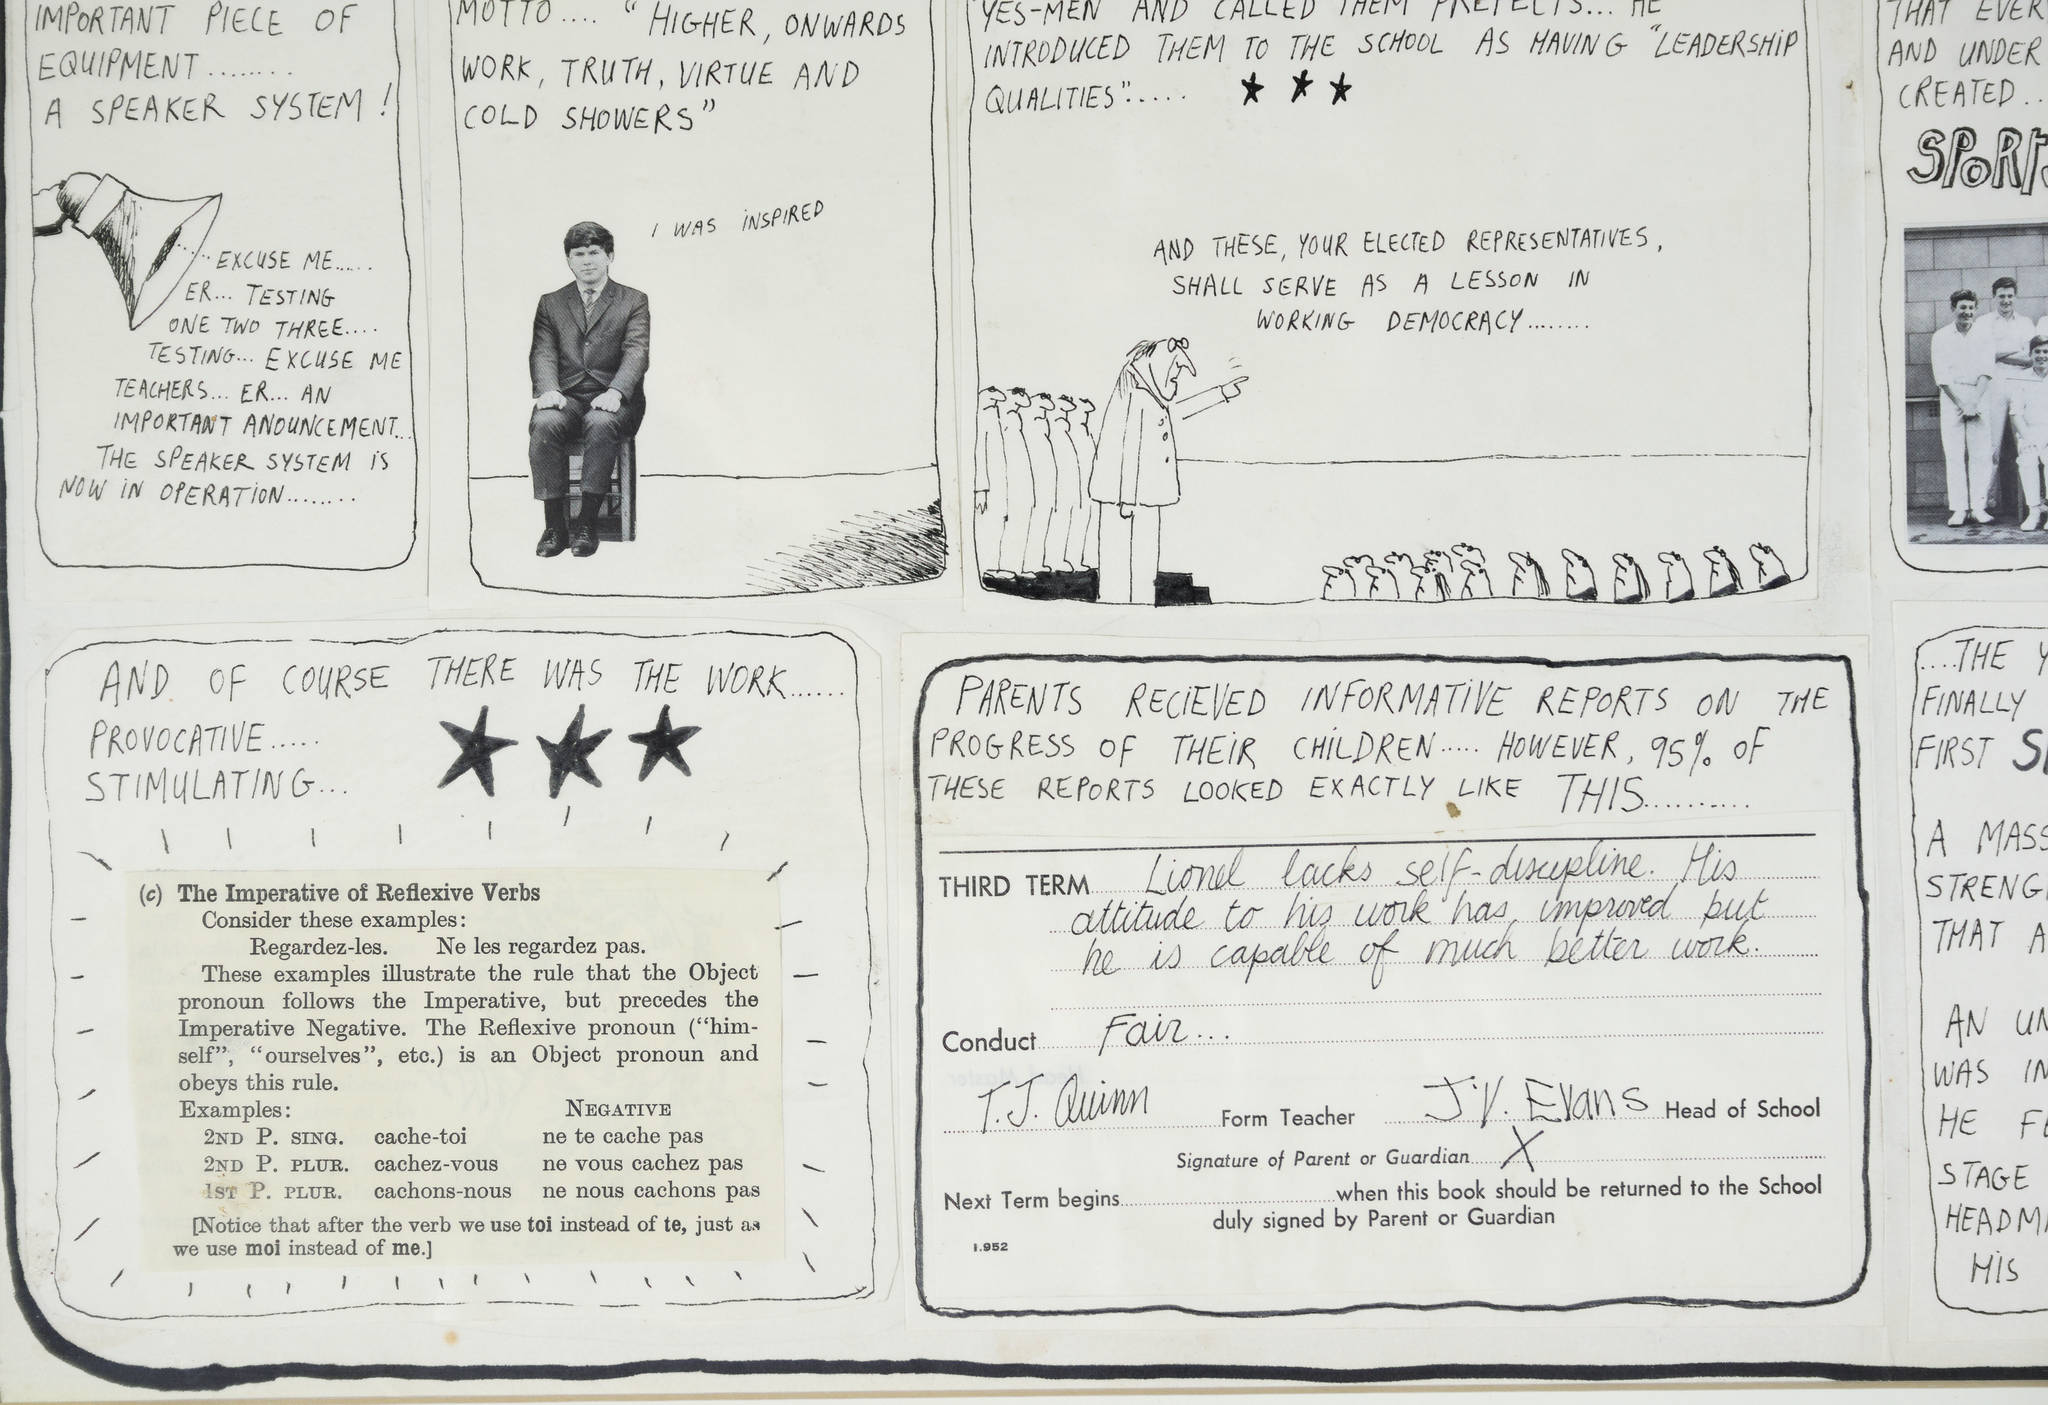 IMPORTANT PIECE OF
EQUIPMENT........
A SPEAKER SYSTEM!
EXCUSE ME.....
ER... TESTING
ONE TWO THREE....
TESTING... EXCUSE ME
TEACHERS... ER... AN
IMPORTANT ANOUNCEMENT...
THE SPEAKER SYSTEM IS
NOW IN OPERATION........
MOTTO.... "HIGHER, ONWARDS
WORK, TRUTH, VIRTUE AND
COLD SHOWERS"
I WAS INSPIRED
YES-MEN AND CALLED THEM PREFECTS... HE
INTRODUCED THEM TO THE SCHOOL AS HAVING "LEADERSHIP
QUALITIES".....
AND THESE, YOUR ELECTED REPRESENTATIVES,
SHALL SERVE AS A LESSON IN
WORKING DEMOCRACY........
THAT EVER
AND UNDER
CREATED..
SPORTS
AND OF COURSE THERE WAS THE WORK......
PROVOCATIVE.....
STIMULATING...
(c) The Imperative of Reflexive Verbs
Consider these examples:
Regardez-les. Ne les regardez pas.
These examples illustrate the rule that the Object
pronoun follows the Imperative, but precedes the
Imperative Negative. The Reflexive pronoun ("him-
self", "ourselves", etc.) is an Object pronoun and
obeys this rule.
Examples: NEGATIVE
2ND P. SING. cache-toi ne te cache pas
2ND P. PLUR. cachez-vous ne vous cachez pas
1ST P. PLUR. cachons-nous ne nous cachons pas
[Notice that after the verb we use toi instead of te, just as
we use moi instead of me.]
PARENTS RECIEVED INFORMATIVE REPORTS ON THE
PROGRESS OF THEIR CHILDREN..... HOWEVER, 95% OF
THESE REPORTS LOOKED EXACTLY LIKE THIS..........
THIRD TERM Lionel lacks self-discipline. His
attitude to his work has improved but
he is capable of much better work.
Conduct Fair...
T.J. Quinn Form Teacher J.V. Evans Head of School
Signature of Parent or Guardian X
Next Term begins when this book should be returned to the School
duly signed by Parent or Guardian
1.952
....THE Y
FINALLY
FIRST
A MASS
STRENG
THAT A
AN UN
WAS IN
HE FE
STAGE
HEADMA
HIS